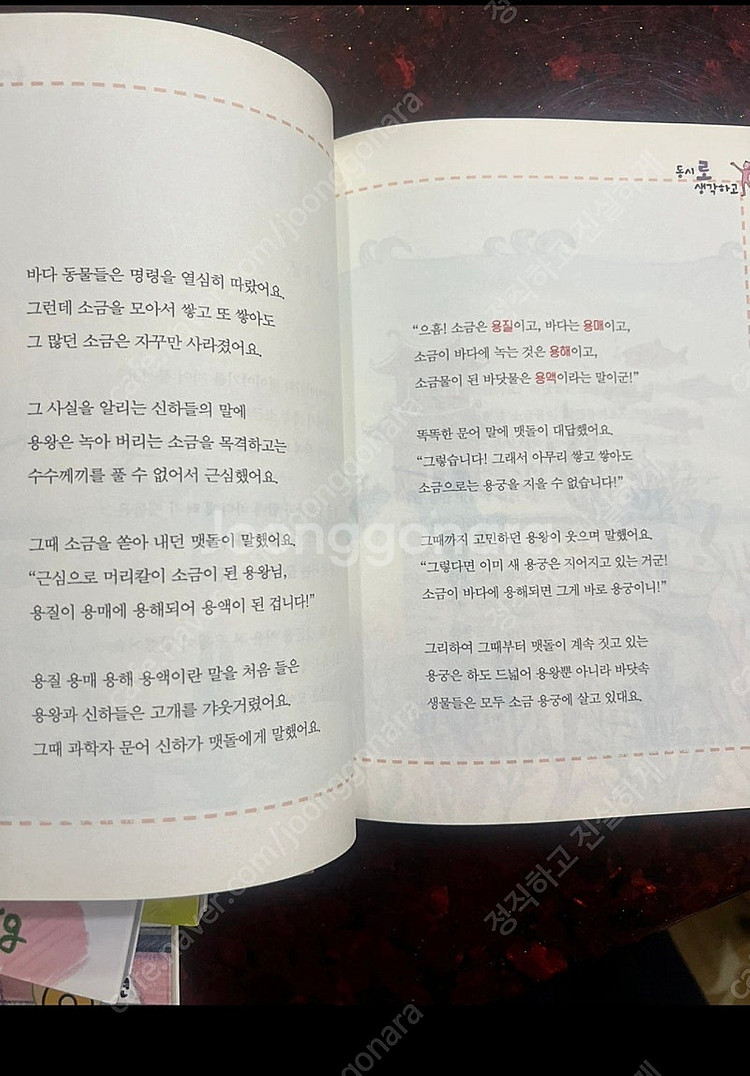 바다 동물들은 명령을 열심히 따랐어요.
그런데 소금을 모아서 쌓고 또 쌓아도
그 많던 소금은 자꾸만 사라졌어요.
그 사실을 알리는 신하들의 말에
용왕은 녹아 버리는 소금을 목격하고는
수수께끼를 풀 수 없어서 근심했어요.
그때 소금을 쏟아 내던 맷돌이 말했어요.
“근심으로 머리칼이 소금이 된 용왕님,
용질이 용매에 용해되어 용액이 된 겁니다!”
용질 용매 용해 용액이란 말을 처음 들은
용왕과 신하들은 고개를 갸웃거렸어요.
그때 과학자 문어 신하가 맷돌에게 말했어요.
동시로
생각하고
“으흠! 소금은 용질이고, 바다는 용매이고,
소금이 바다에 녹는 것은 용해이고,
소금물이 된 바닷물은 용액이라는 말이군!”
똑똑한 문어 말에 맷돌이 대답했어요.
“그렇습니다! 그래서 아무리 쌓고 쌓아도
소금으로는 용궁을 지을 수 없습니다!”
그때까지 고민하던 용왕이 웃으며 말했어요.
“그렇다면 이미 새 용궁은 지어지고 있는 거군!
소금이 바다에 용해되면 그게 바로 용궁이니!”
그리하여 그때부터 맷돌이 계속 짓고 있는
용궁은 하도 드넓어 용왕뿐 아니라 바닷속
생물들은 모두 소금 용궁에 살고 있대요.
Joonggonara
cafe.naver.com/joonggonara
정직하고 진실하게